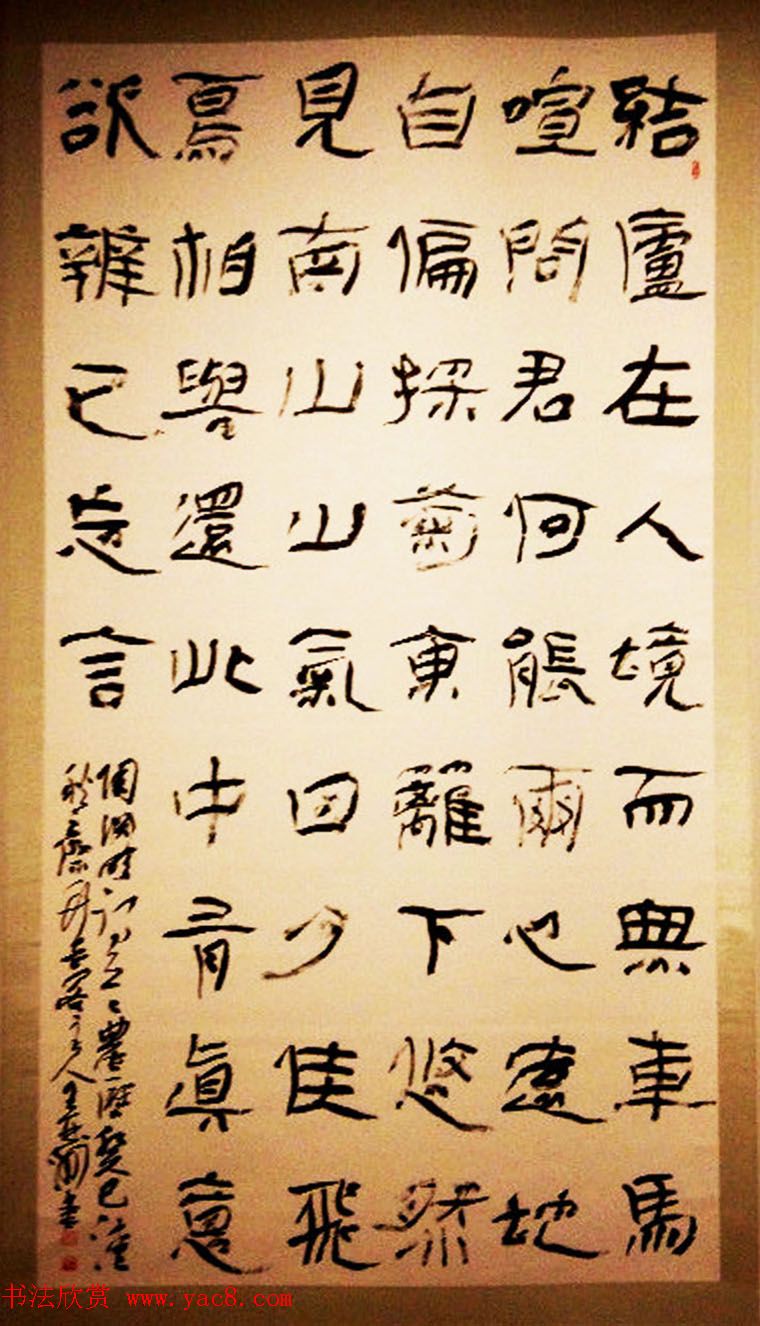 結廬在人境而無車馬
喧問君何能爾心遠地
自偏採菊東籬下悠然
見南山山氣日夕佳飛
鳥相與還此中有真意
欲辨已忘言
陶淵明詩 農歷癸巳
书法欣赏 www.yac8.com